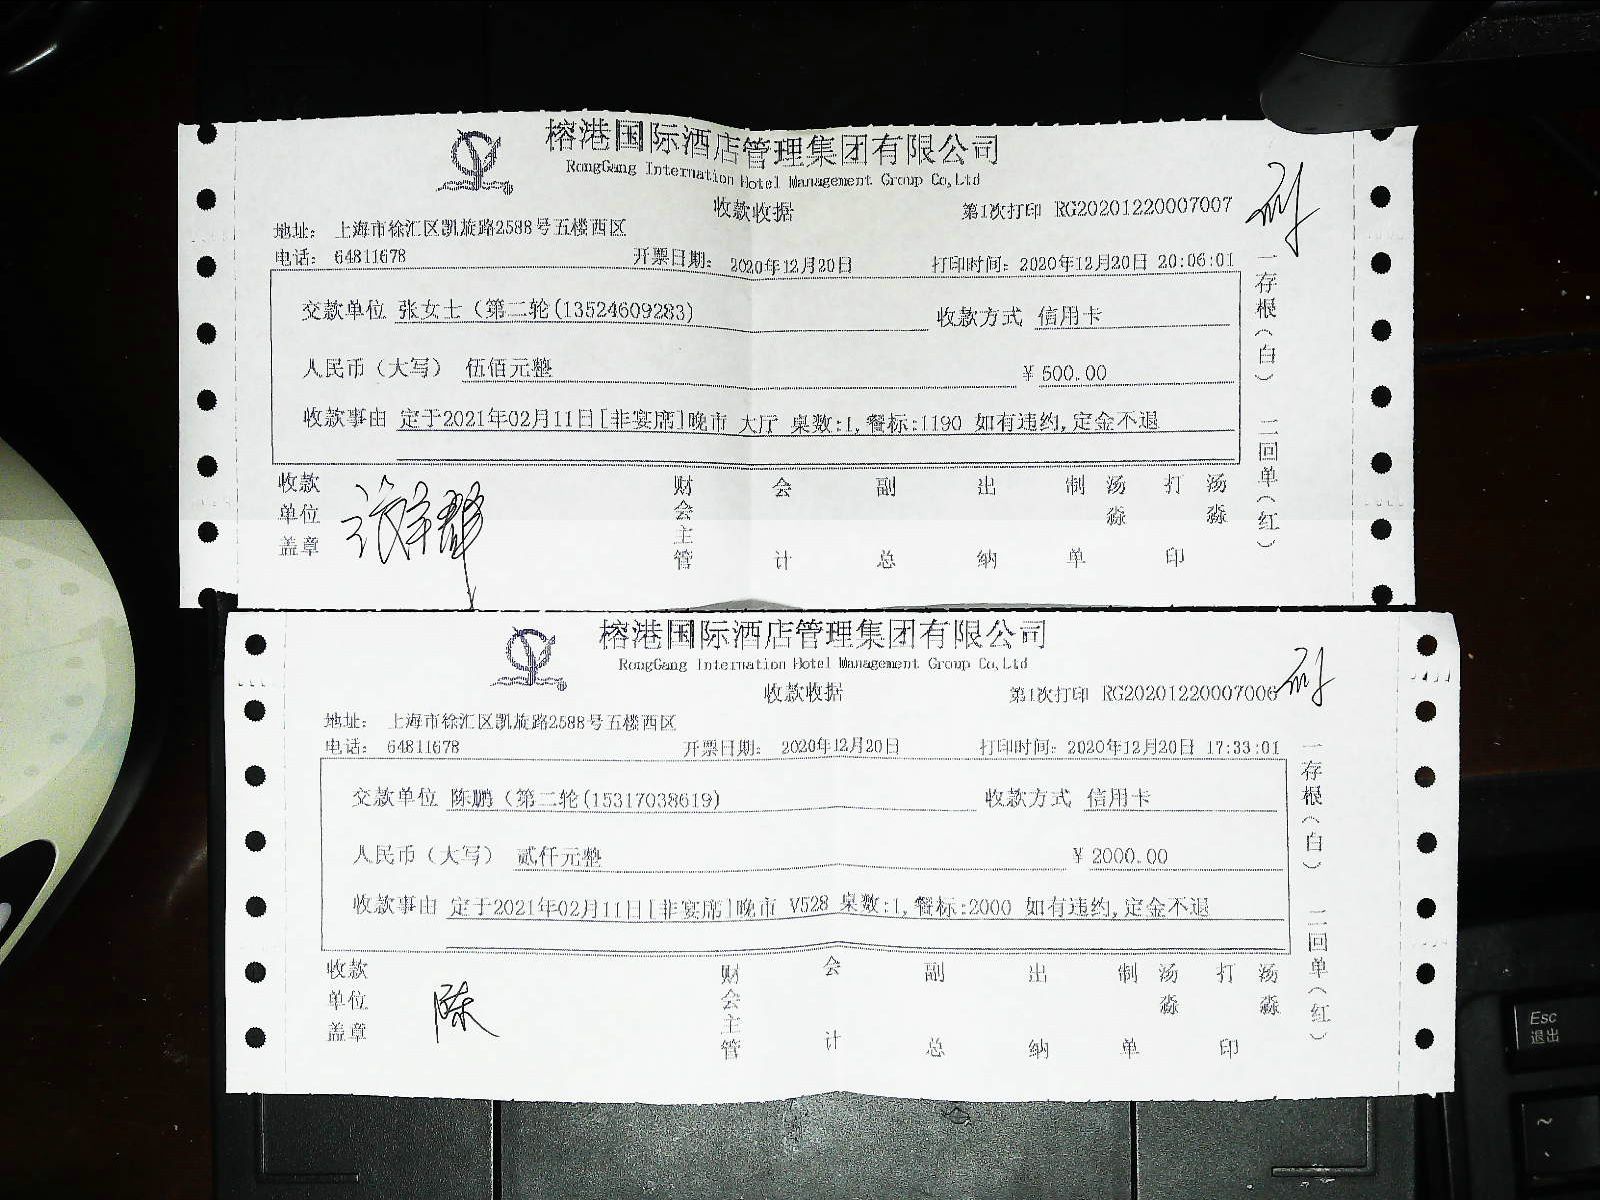 榕港国际酒店管理集团有限公司
RongGang Internation Hotel Management Group Co,Ltd
收款收据
第1次打印 RG20201220007007
地址： 上海市徐汇区凯旋路2588号五楼西区
电话： 64811678 开票日期： 2020年12月20日 打印时间：2020年12月20日 20:06:01
交款单位 张女士（第二轮(13524609283) 收款方式 信用卡
人民币（大写） 伍佰元整 ¥ 500.00
收款事由 定于2021年02月11日[非宴席]晚市 大厅 桌数:1,餐标:1190 如有违约,定金不退
一存根（白） 二回单（红）
收款单位盖章 财会主管 会计 副总 出纳 制单 汤淼 打印 汤淼
榕港国际酒店管理集团有限公司
RongGang Internation Hotel Management Group Co,Ltd
收款收据
第1次打印 RG20201220007006
地址： 上海市徐汇区凯旋路2588号五楼西区
电话： 64811678 开票日期： 2020年12月20日 打印时间：2020年12月20日 17:33:01
交款单位 陈鹏（第二轮(15317038619) 收款方式 信用卡
人民币（大写） 贰仟元整 ¥ 2000.00
收款事由 定于2021年02月11日[非宴席]晚市 V528 桌数:1,餐标:2000 如有违约,定金不退
一存根（白） 二回单（红）
收款单位盖章 陈 财会主管 会计 副总 出纳 制单 汤淼 打印 汤淼
Esc
退出
~